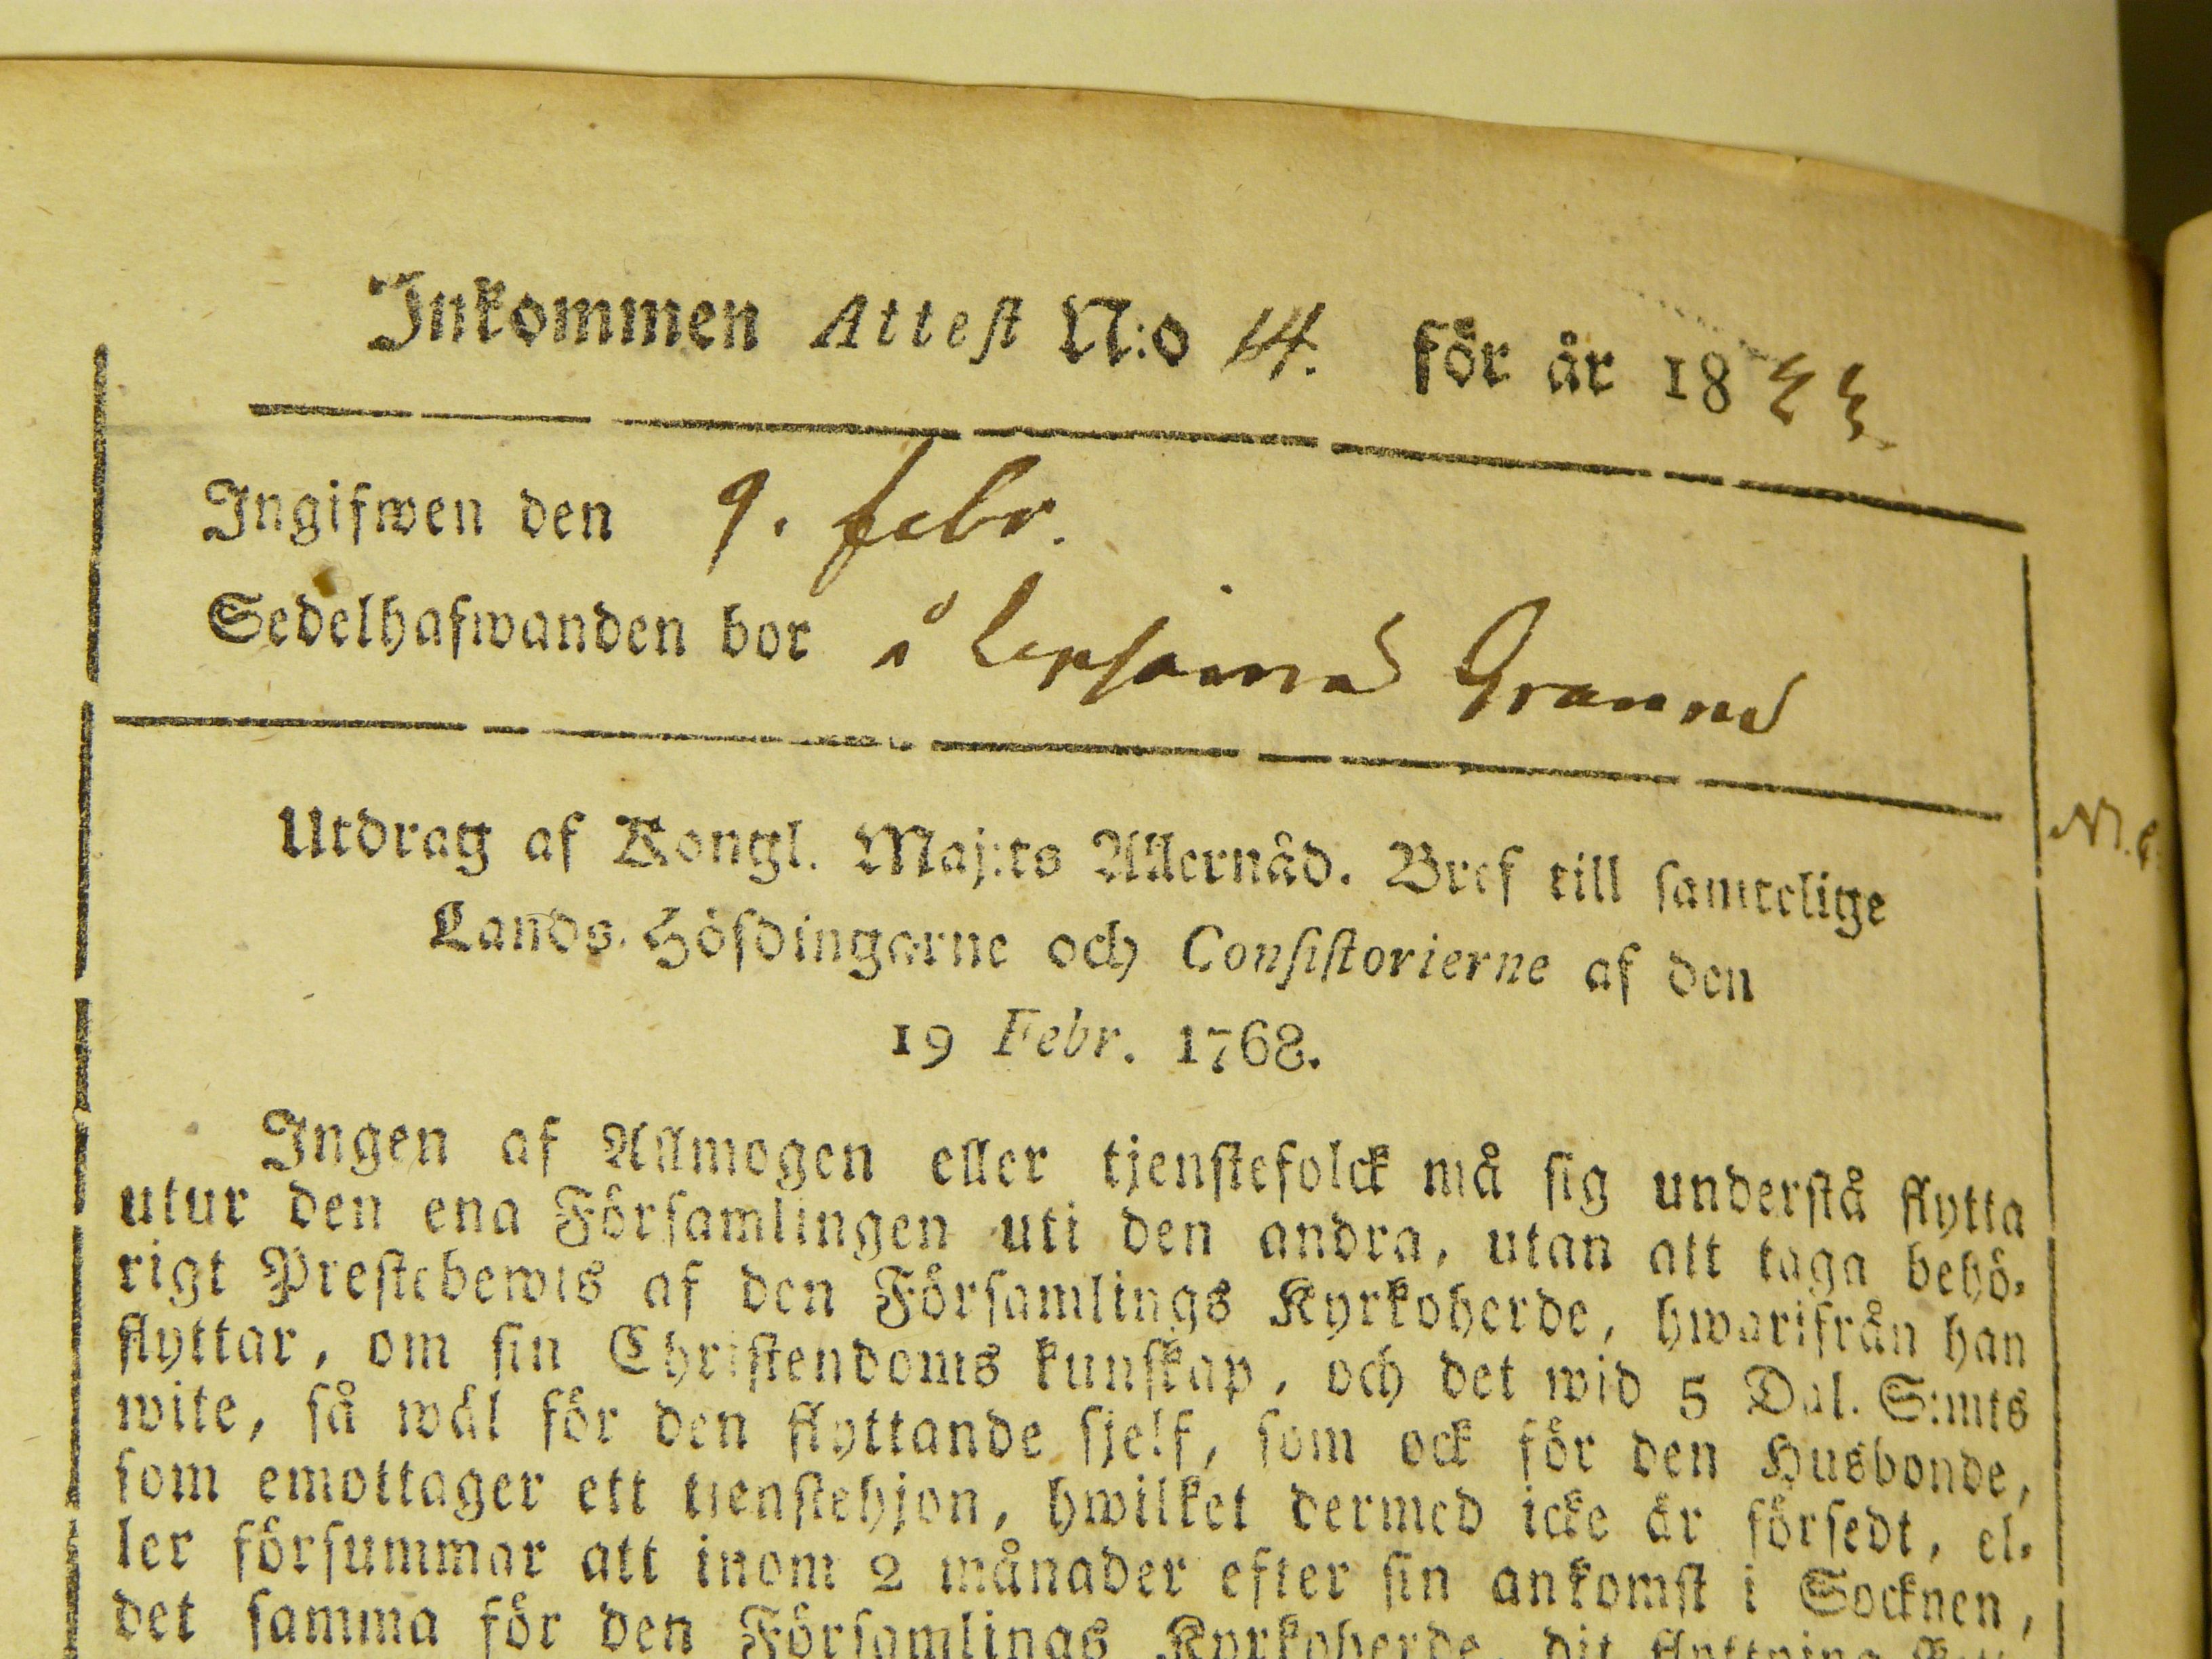 Inkommen Attest N:o 14. för år 1833
Ingifwen den 9. febr.
Sedelhafwanden bor å
Utdrag af Kongl. Maj:ts Allernåd. Bref till samtelige
Lands-Höfdingarne och Consistorierne af den
19 Febr. 1768.
Ingen af Allmogen eller tjenstefolck må sig understå flytta
utur den ena Församlingen uti den andra, utan att taga behö-
rigt Prestebewis af den Församlings Kyrkoherde, hwarifrån han
flyttar, om sin Christendoms kunskap, och det wid 5 Dal. S:mts
wite, så wäl för den flyttande sjelf, som ock för den Husbonde,
som emottager ett tienstehjon, hwilket dermed icke är försedt, el-
ler försummar att inom 2 månader efter sin ankomst i Socknen,
det samma för den Församlings Kyrkoherde, dit flyttning